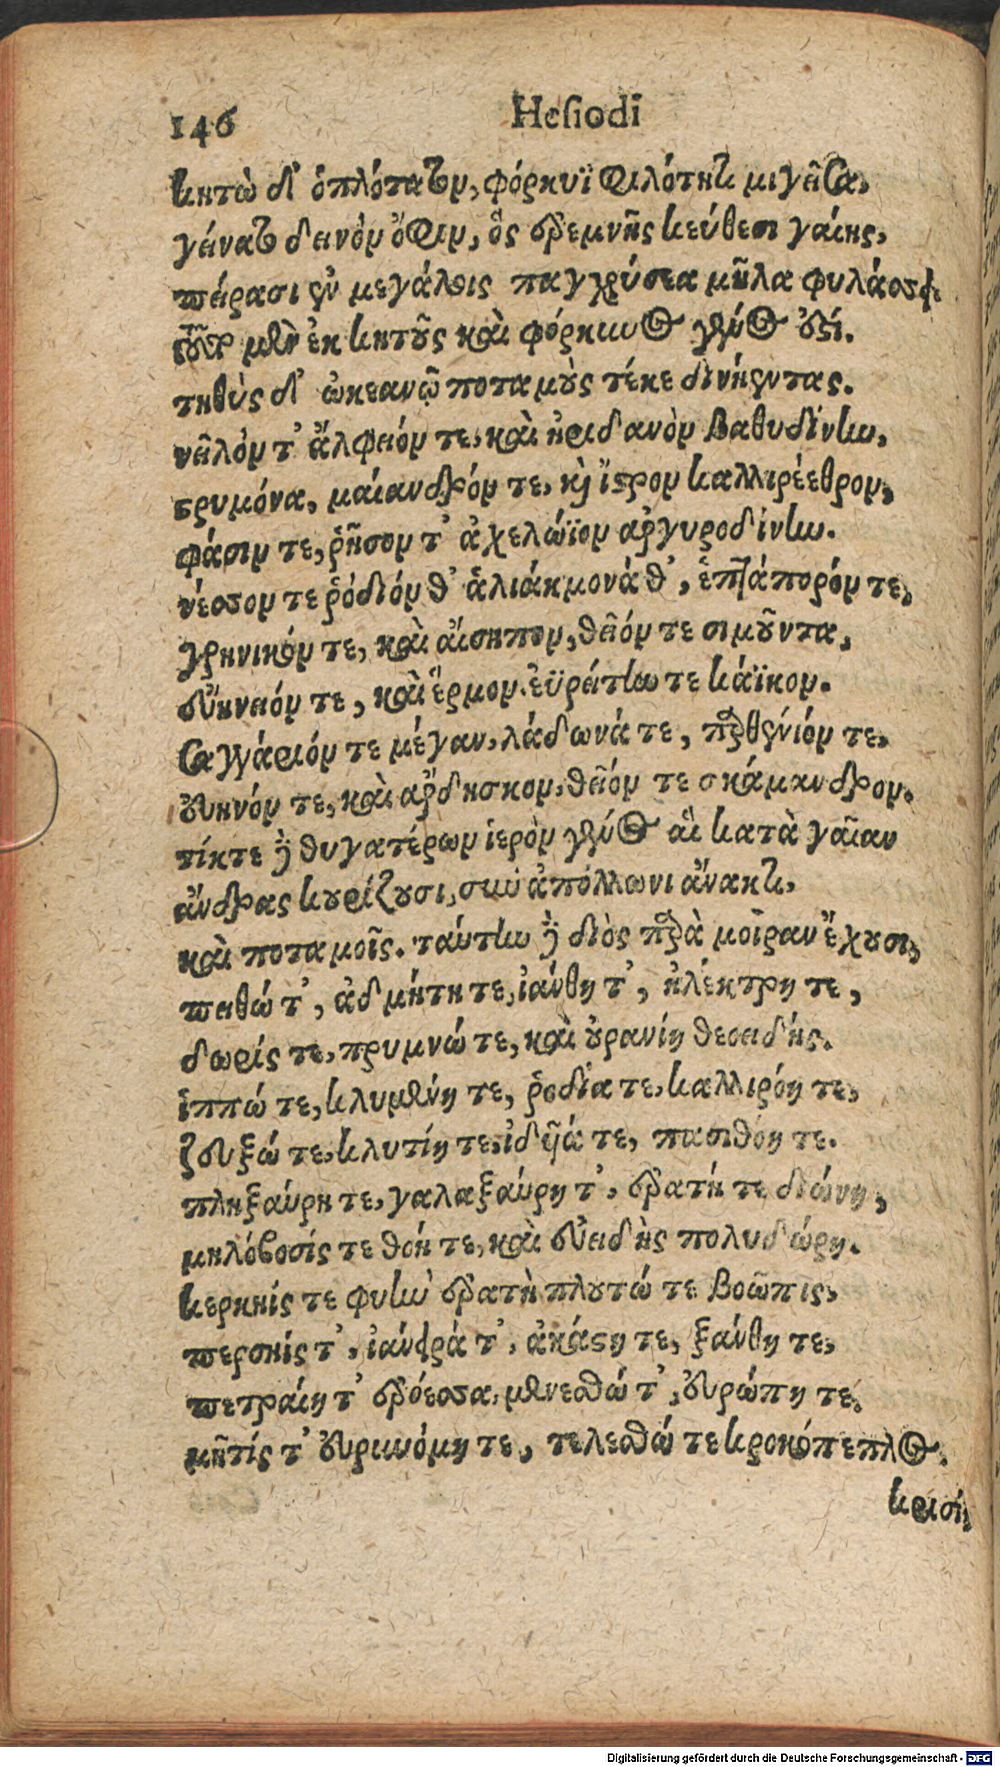 146 Hesiodi
κητὼ δ' ὁπλότατον, φόρκυϊ φιλότητι μιγεῖσα,
γείνατο δεινὸν ὄφιν, ὃς ἐρεμνῆς κεύθεσι γαίης,
πείρασιν ἐν μεγάλοις παγχρύσεα μῆλα φυλάσσει
τοῦτο μὲν ἐκ κητοῦς καὶ φόρκυνος γένος ἐστί.
τηθὺς δ' ὠκεανῷ ποταμοὺς τέκε δινήεντας.
νεῖλόν τ' ἄλφειόν τε, καὶ ἠριδανὸν βαθυδίνην,
στρυμόνα, μαίανδρόν τε, καὶ ἴστρον καλλιρέεθρον,
φάσιν τε, ῥῆσον τ' ἀχελώϊον ἀργυροδίνην.
νέσσον τε ῥόδιόν θ' ἁλιάκμονά θ', ἑπτάπορόν τε,
γρηνικόν τε, καὶ αἴσηπον, θεῖόν τε σιμοῦντα,
πηνειόν τε, καὶ ἕρμον. ἐϋρείτην τε κάϊκον.
σαγγάριόν τε μέγαν, λάδωνά τε, παρθένιόν τε,
εὐηνόν τε, καὶ ἄρδησκον, θεῖόν τε σκάμανδρον.
τίκτε δὲ θυγατέρων ἱερὸν γένος αἳ κατὰ γαῖαν
ἄνδρας κουρίζουσι, σὺν ἀπόλλωνι ἄνακτι,
καὶ ποταμοῖς. ταύτην δὲ διὸς παρὰ μοῖραν ἔχουσι,
πειθώ τ', ἀδμήτη τε, ἰάνθη τ', ἠλέκτρη τε,
δωρίς τε, πρυμνώ τε, καὶ οὐρανίη θεοειδής.
ἱππώ τε, κλυμένη τε, ῥοδία τε, καλλιρόη τε,
ζευξώ τε, κλυτίη τε, ἰδῆά τε, πασιθόη τε.
πληξαύρη τε, γαλαξαύρη τ', ἐρατή τε διώνη,
μηλόβοσίς τε θόη τε, καὶ εὐειδὴς πολυδώρη.
κερκηίς τε φυὴν ἐρατὴ πλουτώ τε βοῶπις,
περσηίς τ', ἰάνειρά τ', ἀκάστη τε, ξάνθη τε,
πετραίη τ' ἐρόεσσα, μενεσθώ τ', εὐρώπη τε.
μῆτίς τ' εὐρυνόμη τε, τελεσθώ τε κροκόπεπλος.
κρισίη
Digitalisierung gefördert durch die Deutsche Forschungsgemeinschaft - DFG